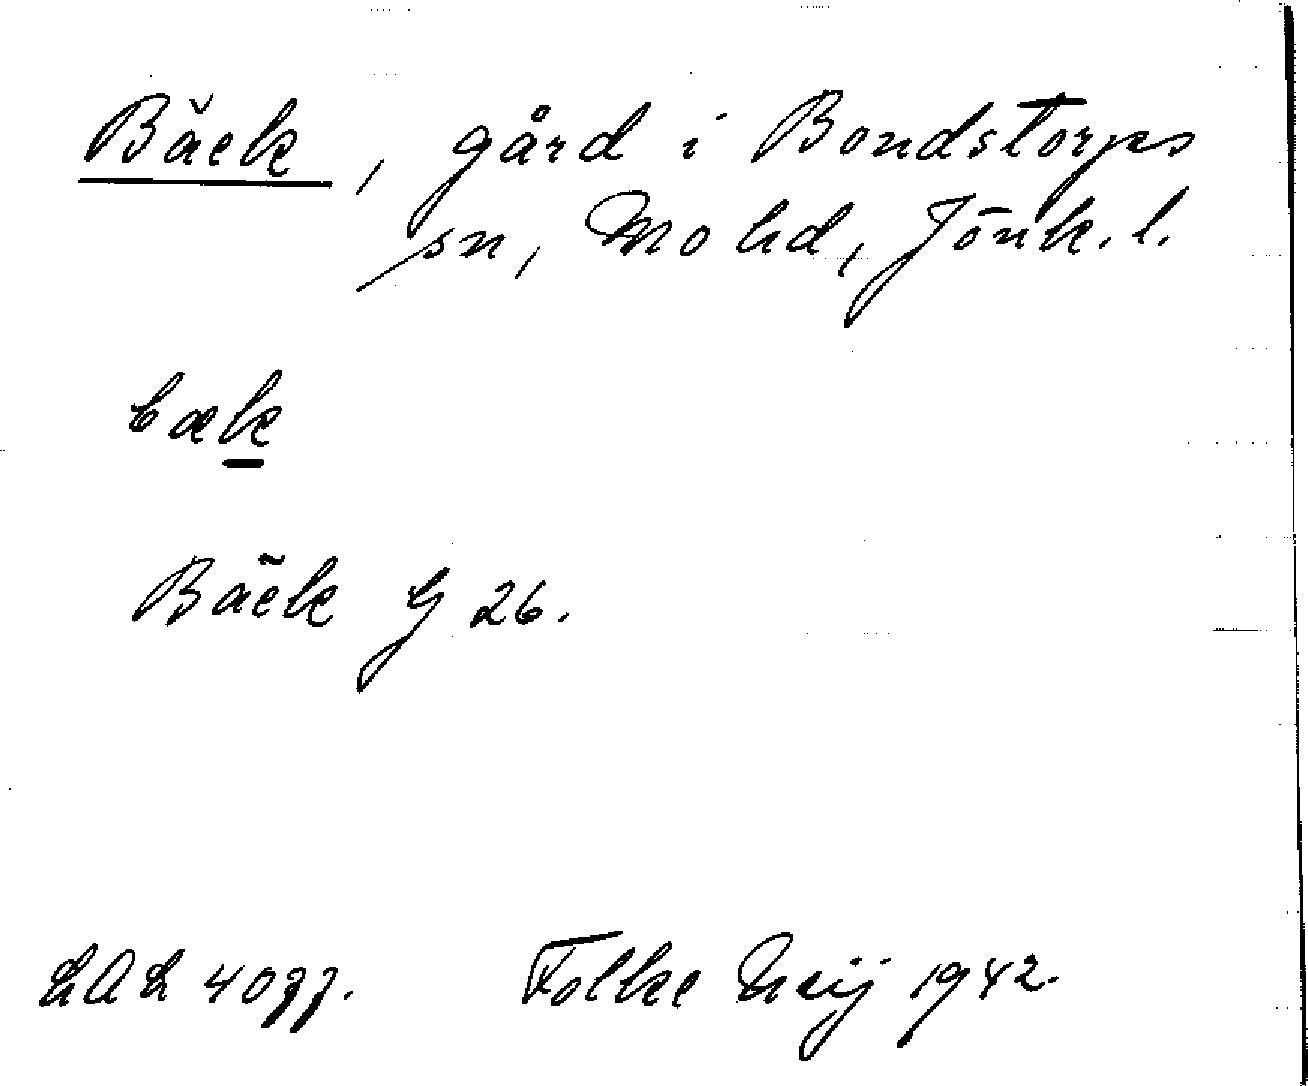 Bäck, gård i Bondstorps
sn, Mo hd, Jönk. l.
bæk
Bäck G 26.
LAL 4077. Folke Meij 1942.